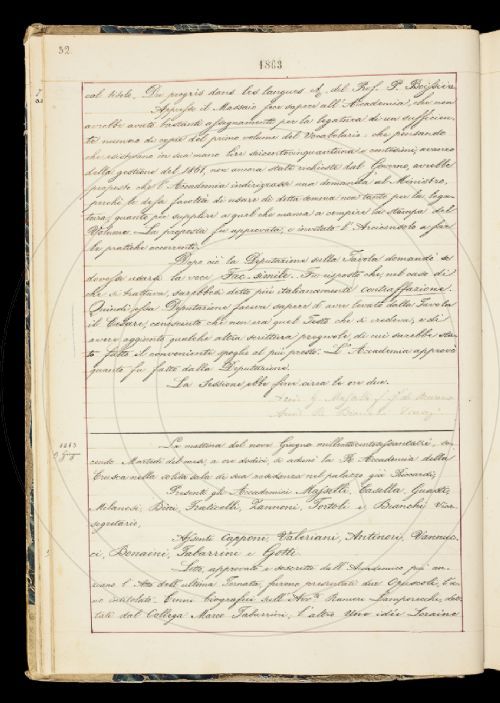 32.
1863
col titolo. Du progrés dans les langues &c. del Prof. P.
Appresso il Massaio fece sapere all'Accademia, che non
avrebbe avuto bastanti assegnamenti per la legatura di un sufficien-
te numero di copie del primo volume del Vocabolario: che pensando
che esistono in sua mano lire seicentocinquantuna e centesimi, avanzo
della gestione del 1861, non ancora state richieste dal Governo, avrebbe
proposto che l'Accademia indirizzasse una domanda al Ministro,
perchè le dia facoltà di usare di detta somma non tanto per la lega-
tura, quanto per supplire a quel che manca a compire la stampa del
Volume. La proposta fu approvata, e invitato l'Arciconsolo a far
le pratiche occorrenti.
Dopo ciò la Deputazione sulla Tavola domandò se
dovesse usarsi la voce Fac-simile. Fu risposto che, nel caso di
che si trattava, sarebbesi detto più italianamente contraffazione.
Quindi essa Deputazione faceva sapere d'aver levato dalla Tavola
il Cesare, conosciuto che non era quel Testo che si credeva; e di
avere aggiunta qualche altra scrittura pregevole, di cui sarebbe sta-
to fatto il conveniente spoglio al più presto. L'Accademia approvò
quanto fu fatto dalla Deputazione.
La Sessione ebbe fine circa le ore due.
1863
9 Giugno
La mattina del nove Giugno milleottocentosessantatrè, se-
condo Martedì del mese, a ore dodici, si adunò la R. Accademia della
Crusca nella solita sala di sua residenza nel palazzo già Riccardi.
Presenti gli Accademici Maffelli, Casella, Guasti,
Milanesi, Bini, Fraticelli, Zannoni, Tortoli e Bianchi Vice
segretario.
Assenti Capponi, Valeriani, Antinori, Vannuc-
ci, Bonaini, Tabarrini e Gotti.
Letto, approvato e soscritto dall'Accademico più an-
ziano l'Atto dell'ultima Tornata, furono presentati due Opuscoli, l'u-
no intitolato: Cenni biografici dell'Avv.to Ranieri Lamporecchi, det-
tati dal Collega Marco Tabarrini, l'altro Una idée Lorraine